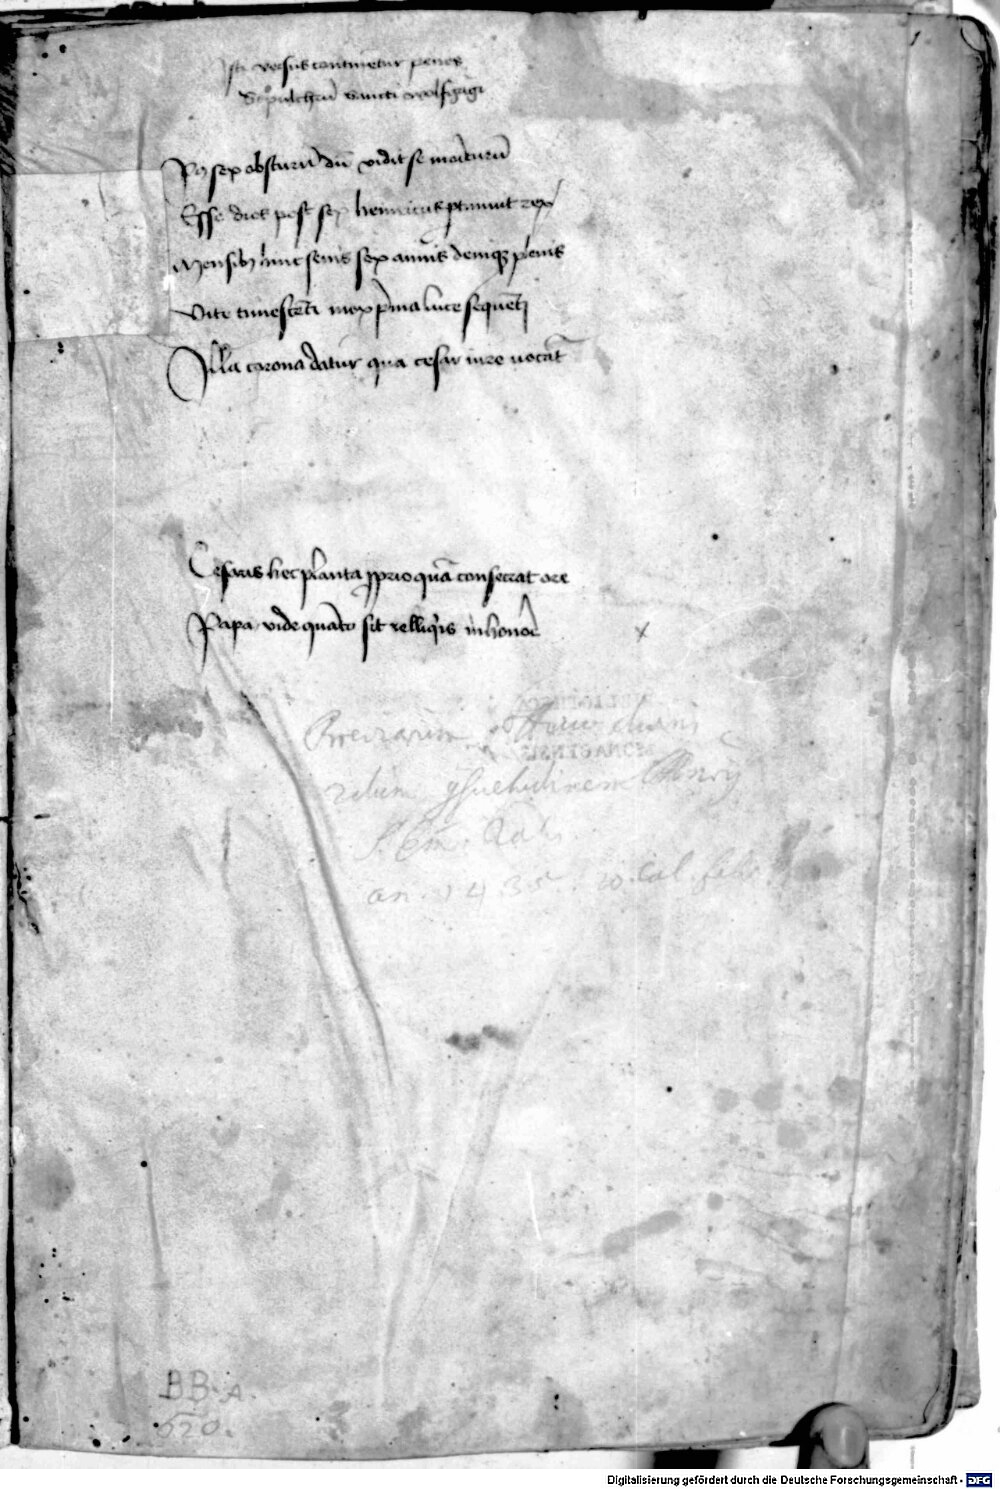 Isti versus continẽtur penes
Sepulchrũ sancti wolfgãgi
Pꝰ sex obscurũ dũ vidit se moriturũ
Esse dies post sex heinricus ptimuit rex
Mensibꝫ hinc senis sex annis deniqꝫ plenis
Vite timescẽti mox pͥma luce sequẽti
Illa corona datur qua cesar iure vocat̃
Cesaris hec planta ꝓprio quã consecrat ore
Papa vide quãto sit relliqͥis in honore
x
an. 1435. 10. Cal. feb.
BB. A
520.
Digitalisierung gefördert durch die Deutsche Forschungsgemeinschaft - DFG